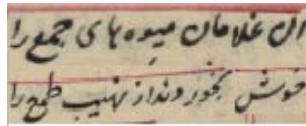 آن غلامان میوه های جمع را
خوش بخوردند از نهیب طمع را